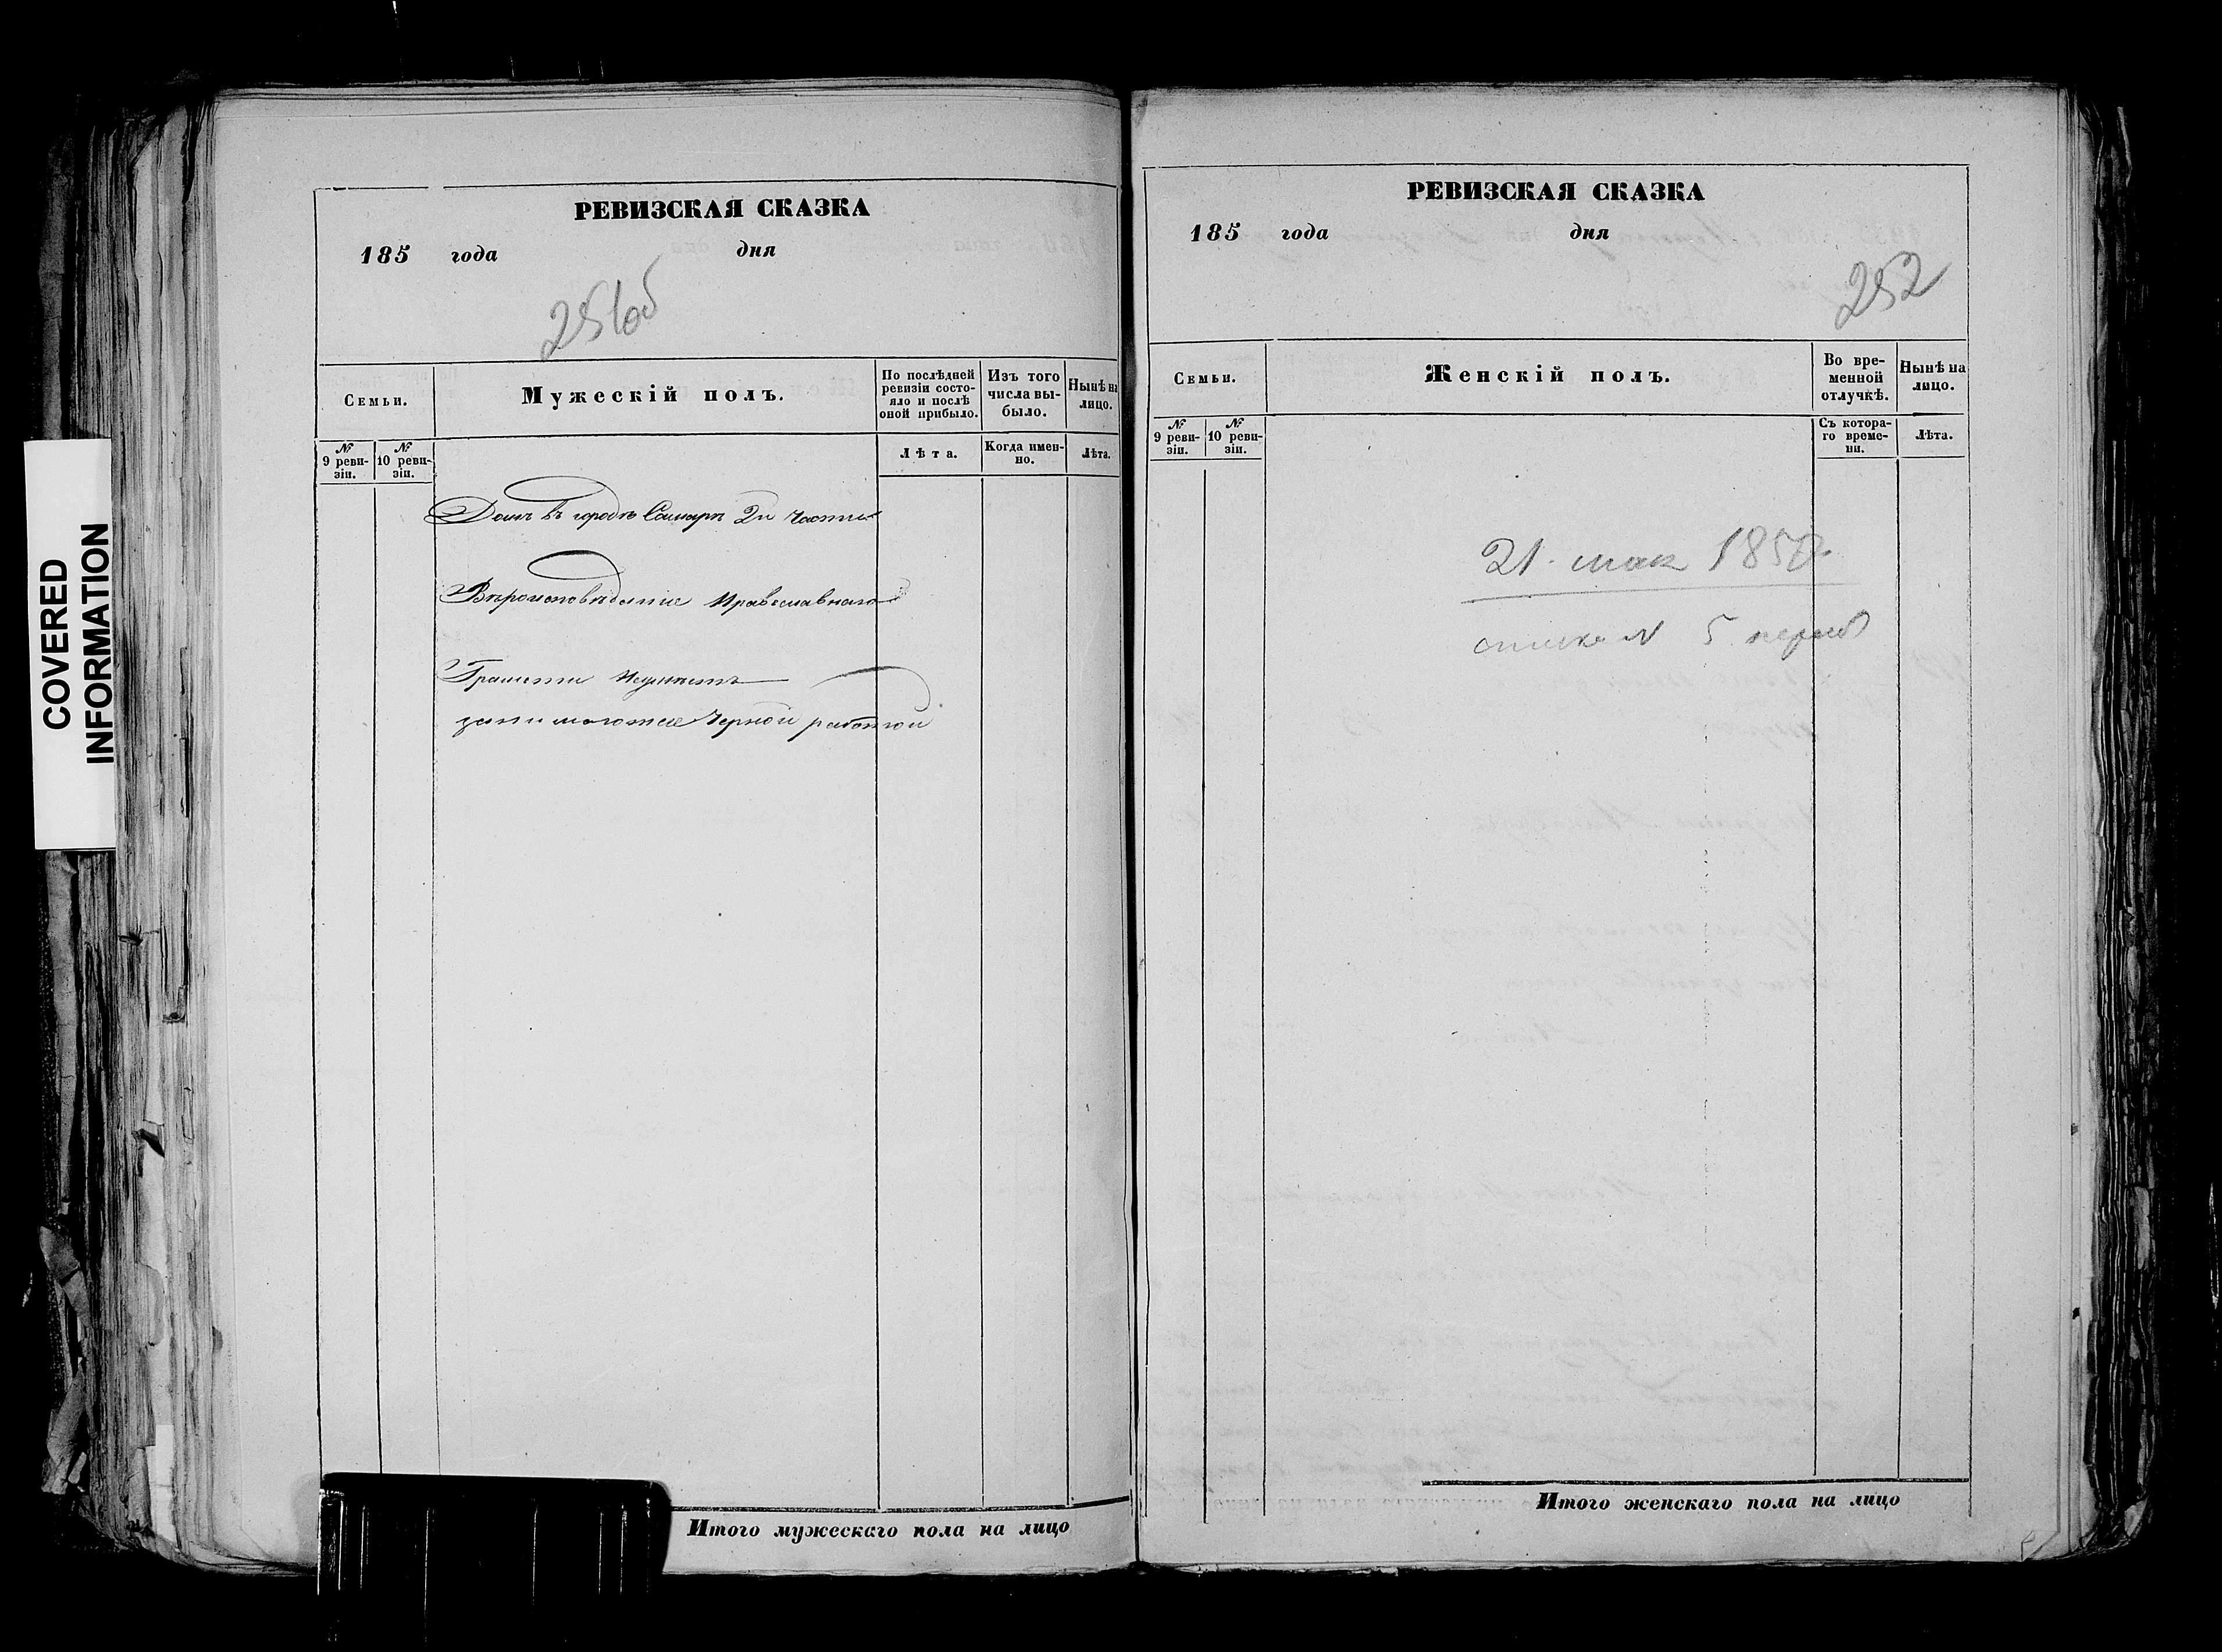 COVERED
INFORMATION
РЕВИЗСКАЯ СКАЗКА
185 года дня
251об
Семьи.
Мужескій полъ.
По послѣдней ревизіи состо-
яло и послѣ
оной прибыло.
Изъ того
числа вы-
было.
Нынѣ на
лицо.
№
9 реви-
зіи.
№
10 реви-
зіи.
Лѣта.
Когда имен-
но.
Лѣта.
Домъ въ городѣ Самарѣ 2й части
Вѣроисповѣданіе Православнаго
Грамоти Неумѣетъ
занимаются Черной работой
Итого мужескаго пола на лицо
РЕВИЗСКАЯ СКАЗКА
185 года дня
252
Семьи.
Женскій полъ.
Во вре-
менной
отлучкѣ.
Нынѣ на
лицо.
№
9 реви-
зіи.
№
10 реви-
зіи.
Съ котора-
го време-
ни.
Лѣта.
21 мая
N 5
Итого женскаго пола на лицо